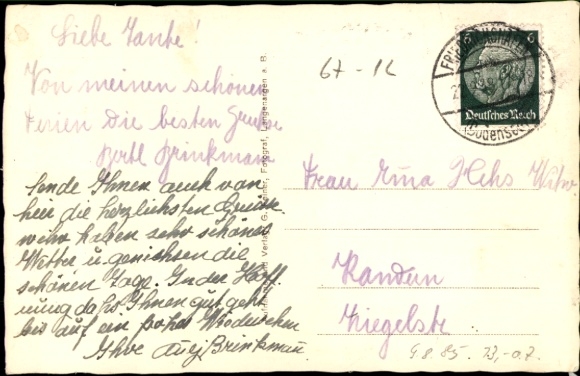 Liebe Tante!
Von meinen schönen
Ferien die besten Grüsse
Brinkman
Sende Ihnen auch von
hier die herzlichsten Grüsse.
wir haben sehr schönes
Wetter u. genießen die
schönen Tage. In der Hoff
nung daß Ihnen gut geht
bis auf ein frohes Wiedersehen
Ihre Brinkman
Verlag Fotograf, Langenargen a. B.
67-16
Deutsches Reich
6
(Bodensee)
Frau
Kandern
Ziegelstr
9.8.85.